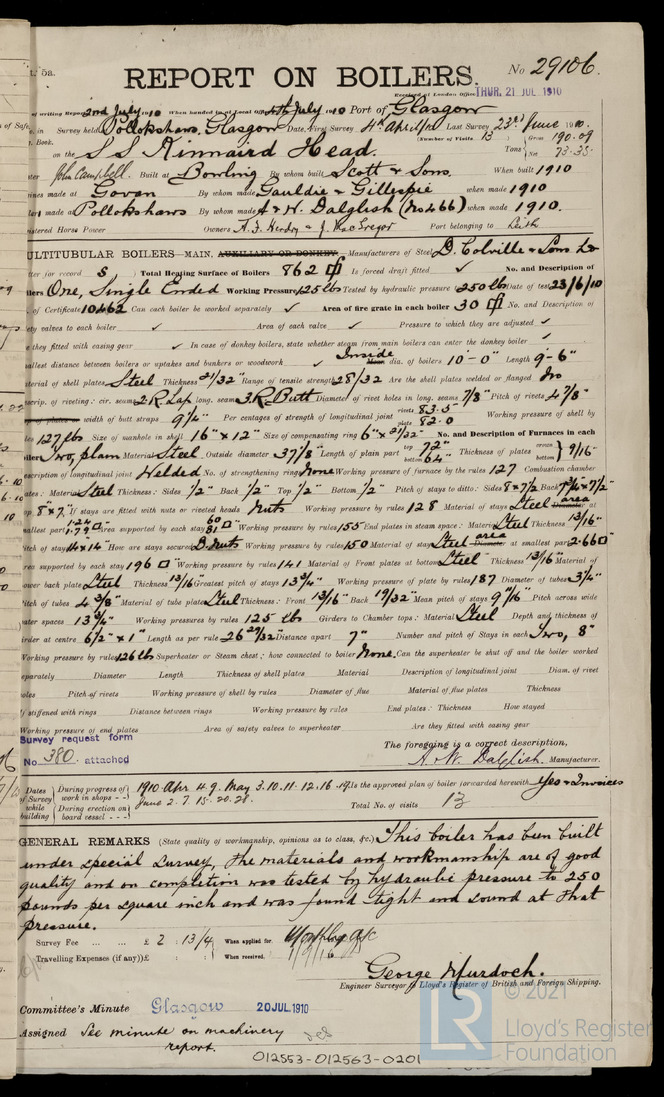 5a.
REPORT ON BOILERS.
No 29106.
Received at London Office THUR. 21 JUL 1910
of writing Report 2nd July 1910 When handed in at Local Office 4th July 1910 Port of Glasgow
in Survey held Pollokshaws, Glasgow Date, First Survey 4th April/10 Last Survey 23rd June 1910.
Book. (Number of Visits 13) Gross 190.09
on the S.S. Kinnaird Head. Tons Net 73.35
John Campbell. Built at Bowling By whom built Scott & Sons. When built 1910
made at Govan By whom made Gauldie & Gillespie when made 1910
made at Pollokshaws By whom made A & W. Dalglish (No 466) when made 1910.
Horse Power Owners A. F. Hendry & J. MacGregor Port belonging to Leith
ULTITUBULAR BOILERS—MAIN, AUXILIARY OR DONKEY.— Manufacturers of Steel D. Colville & Sons Ld
for record S Total Heating Surface of Boilers 862 Is forced draft fitted ✓ No. and Description of
One, Single Ended Working Pressure 125 lbs Tested by hydraulic pressure 250 lbs Date of test 23/6/10
of Certificate 10462 Can each boiler be worked separately ✓ Area of fire grate in each boiler 30 No. and Description of
valves to each boiler ✓ Area of each valve ✓ Pressure to which they are adjusted ✓
they fitted with easing gear ✓ In case of donkey boilers, state whether steam from main boilers can enter the donkey boiler ✓
distance between boilers or uptakes and bunkers or woodwork ✓ Inside Mean dia. of boilers 10'-0" Length 9'-6"
of shell plates Steel Thickness 21/32" Range of tensile strength 28/32 Are the shell plates welded or flanged No
of riveting: cir. seams 2.R Lap long. seams 3.R. Butt Diameter of rivet holes in long. seams 7/8" Pitch of rivets 4 7/8"
width of butt straps 9 1/4" Per centages of strength of longitudinal joint rivets 83.5 plate 82.0 Working pressure of shell by
127 lbs Size of manhole in shell 16" × 12" Size of compensating ring 6" × 21/32" No. and Description of Furnaces in each
Two, plain Material Steel Outside diameter 37 7/8" Length of plain part top 72" bottom 64" Thickness of plates crown bottom 9/16"
of longitudinal joint Welded No. of strengthening rings None Working pressure of furnace by the rules 127 Combustion chamber
Material Steel Thickness: Sides 1/2" Back 1/2" Top 1/2" Bottom 1/2" Pitch of stays to ditto: Sides 8 × 7 1/2 Back 7 3/4" × 7 1/2"
8" × 7" If stays are fitted with nuts or riveted heads Nuts Working pressure by rules 128 Material of stays Steel area Diameter at
smallest part Area supported by each stay Working pressure by rules 155 End plates in steam space: Material Steel Thickness 13/16"
Pitch of stays 14 × 14" How are stays secured D. Nuts Working pressure by rules 150 Material of stays Steel area Diameter at smallest part 2.66
Area supported by each stay 196 Working pressure by rules 141 Material of Front plates at bottom Steel Thickness 13/16" Material of
Lower back plate Steel Thickness 13/16" Greatest pitch of stays 13 3/4" Working pressure of plate by rules 187 Diameter of tubes 3 1/4"
Pitch of tubes 4 3/8" Material of tube plates Steel Thickness: Front 13/16" Back 19/32" Mean pitch of stays 9 7/16" Pitch across wide
water spaces 13 3/4" Working pressures by rules 125 lbs Girders to Chamber tops: Material Steel Depth and thickness of
girder at centre 6 1/2" × 1" Length as per rule 26 29/32" Distance apart 7" Number and pitch of Stays in each Two, 8"
Working pressure by rules 126 lbs Superheater or Steam chest; how connected to boiler None. Can the superheater be shut off and the boiler worked
separately Diameter Length Thickness of shell plates Material Description of longitudinal joint Diam. of rivet
holes Pitch of rivets Working pressure of shell by rules Diameter of flue Material of flue plates Thickness
If stiffened with rings Distance between rings Working pressure by rules End plates: Thickness How stayed
Working pressure of end plates Area of safety valves to superheater Are they fitted with easing gear
Survey request form
No. 380 attached
The foregoing is a correct description,
A. & W. Dalglish. Manufacturer.
Dates of Survey while building During progress of work in shops - - 1910 Apr 4. 9. May 3. 10. 11. 12. 16. 19. Is the approved plan of boiler forwarded herewith Yes & Invoices
During erection on board vessel - - - June 2. 7. 15. 20. 28. Total No. of visits 13
GENERAL REMARKS (State quality of workmanship, opinions as to class, &c.) This boiler has been built
under special survey, the materials and workmanship are of good
quality and on completion was tested by hydraulic pressure to 250
pounds per square inch and was found tight and sound at that
pressure.
Survey Fee ... ... £ 2 : 13/4 When applied for
Travelling Expenses (if any) £ : : When received,
George Murdoch.
Engineer Surveyor to Lloyd's Register of British and Foreign Shipping.
Committee's Minute Glasgow 20 JUL 1910
Assigned See minute on machinery
report.
012553-012563-0201
© 2021
LR Lloyd's Register
Foundation